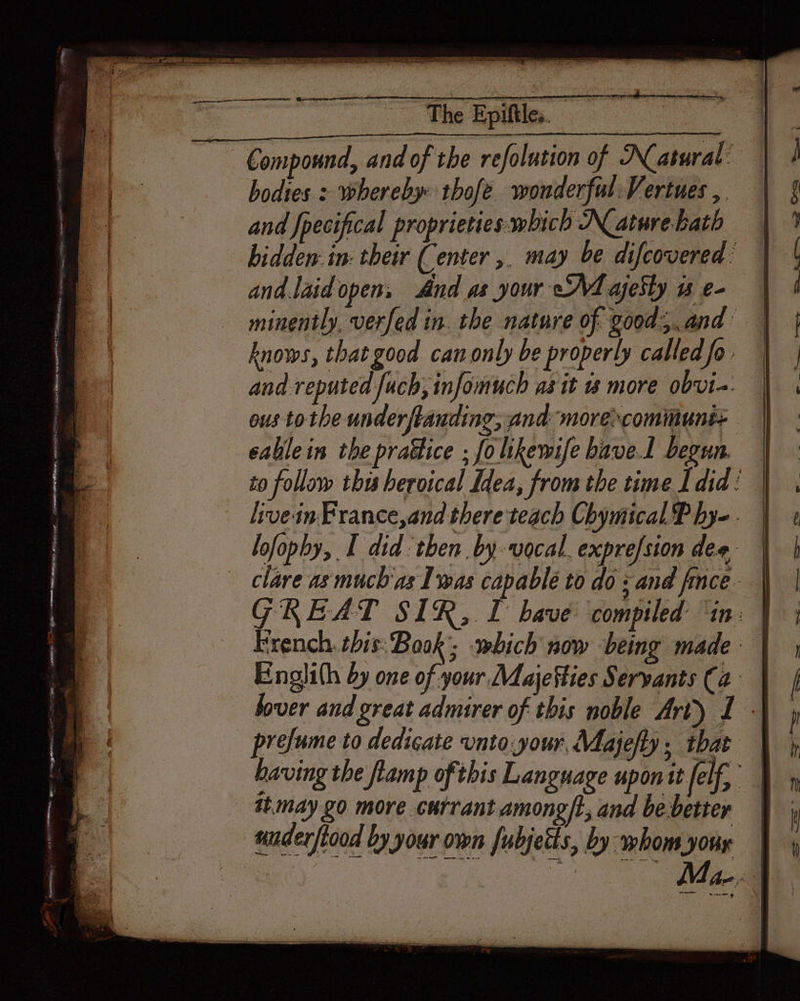 The Epiſtle.
Compound, and of the reſolution of Natural
bodies : whereby thoſe wonderful Vertues,
and ſpecifical proprieties which Nature hath
hidden in their Center, may be diſcovered
and laid open. And as your Majeſty is e-
minently verſed in the nature of good, and
knows, that good can only be properly called ſo
and reputed ſuch, inſomuch as it is more obvi-
ous to the underſtanding, and more communi-
cable in the practice ; ſo likewiſe have I begun
to follow this heroical Idea, from the time I did
live in France, and there teach Chymical Phy-
loſophy, I did then by vocal expreſsion de-
clare as much as I was capable to do ; and ſince
GREAT SIR, I have compiled in
French this Book ; which now being made
Engliſh by one of your Majeſties Servants (a
lover and great admirer of this noble Art) I
preſume to dedicate unto your Majeſty ; that
having the ſtamp of this Language upon it ſelf,
it may go more currant amongſt, and be better
underſtood by your own ſubjects, by whom your
Ma-